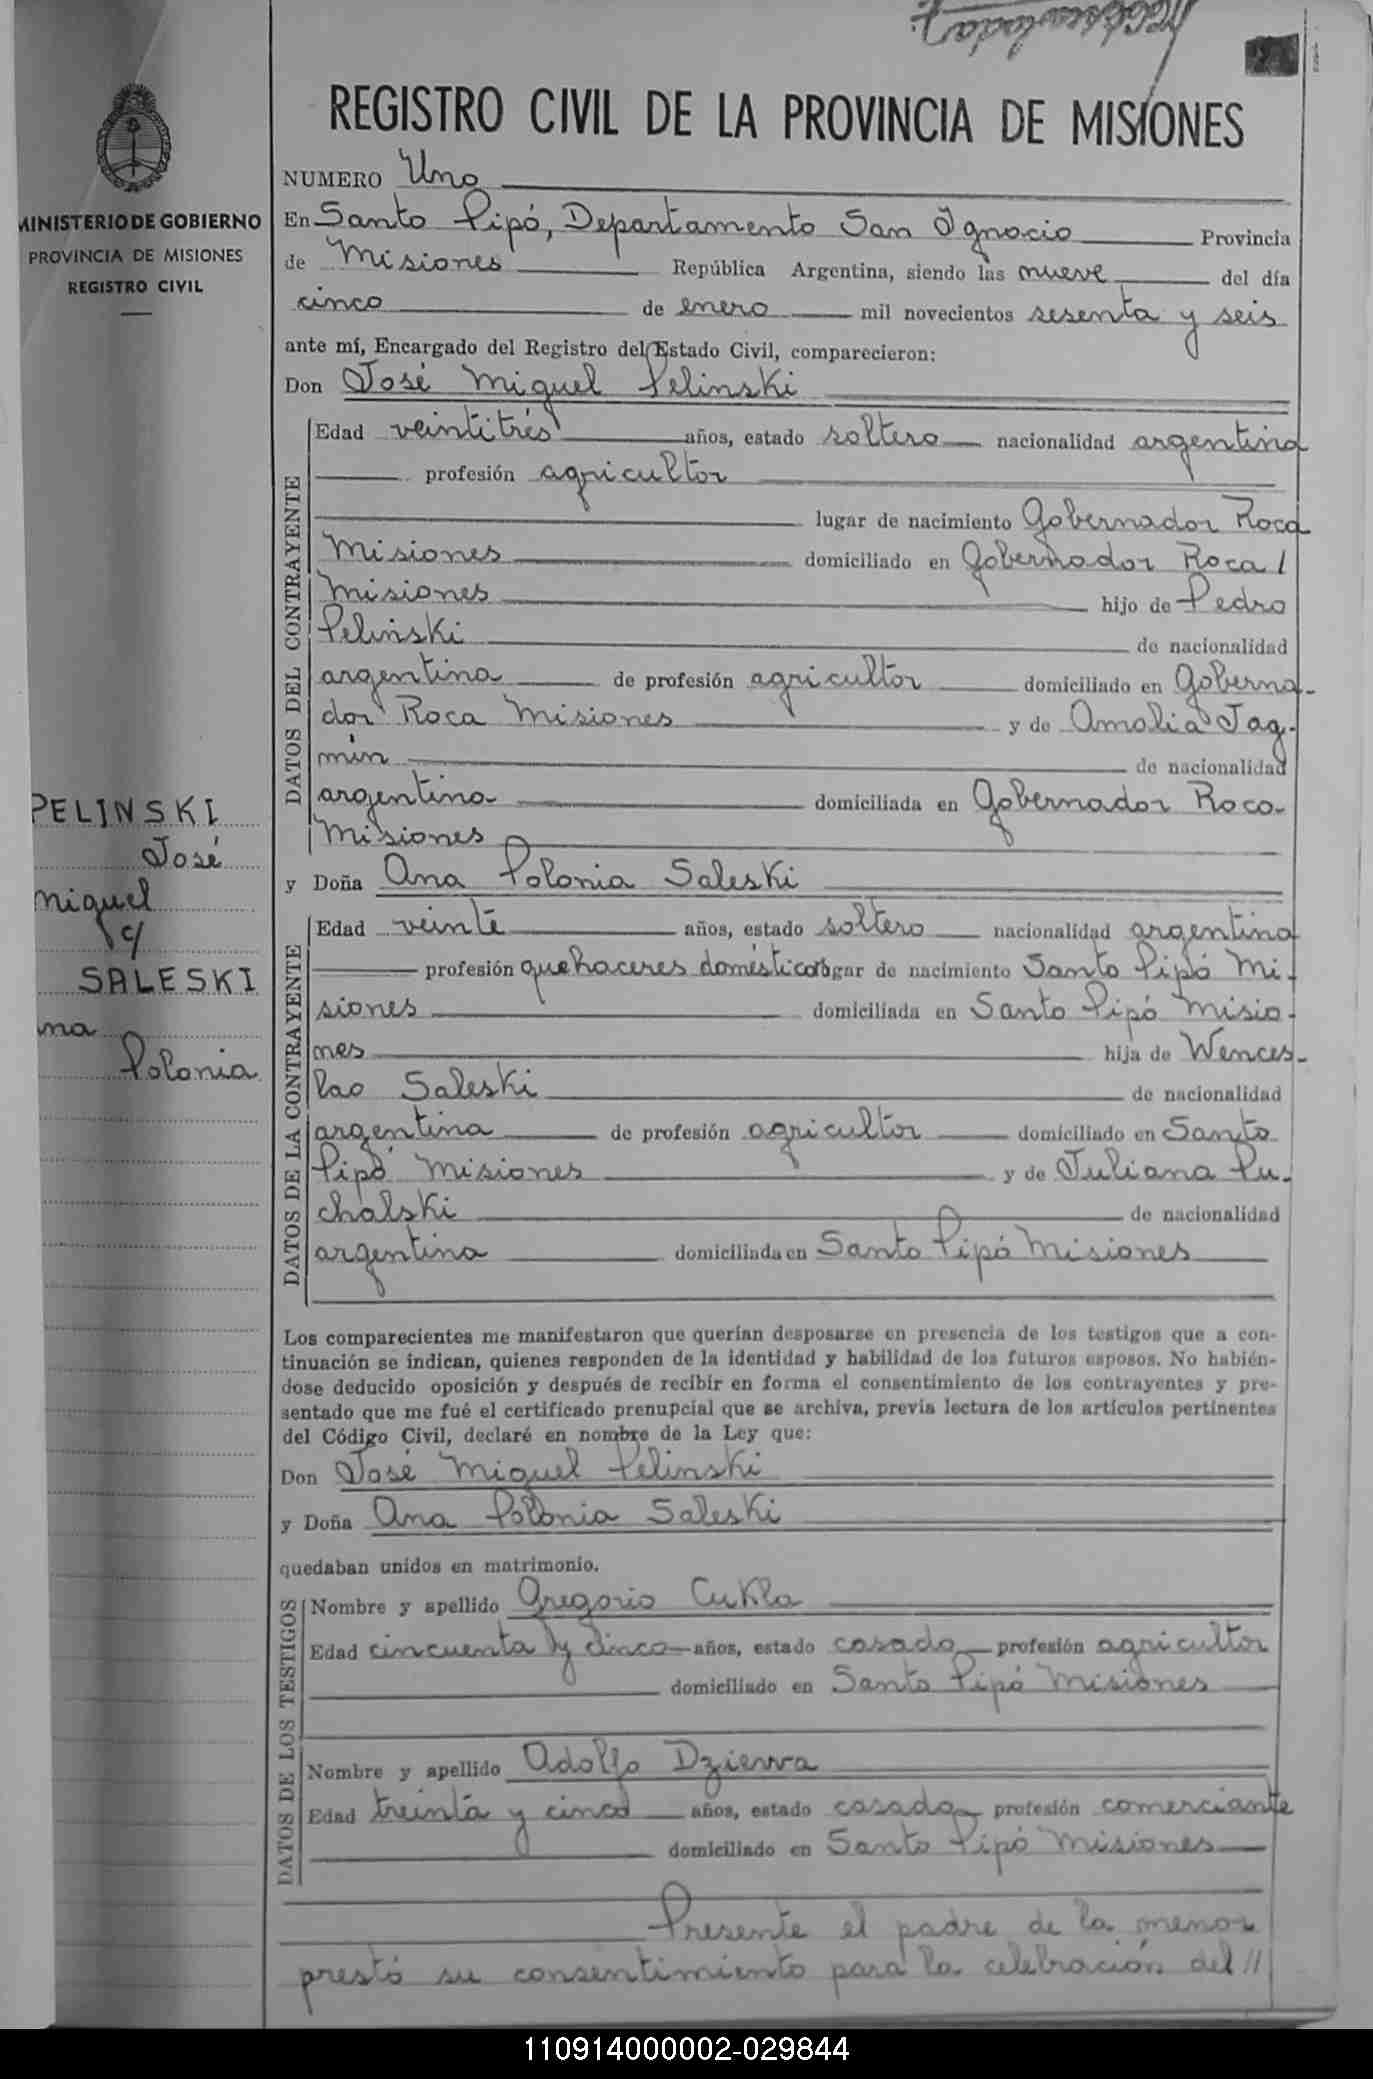 REGISTRO CIVIL DE LA PROVINCIA DE MISIONES
MINISTERIO DE GOBIERNO
PROVINCIA DE MISIONES
REGISTRO CIVIL
PELINSKI
José
Miguel
c/
SALESKI
na
Polonia
NUMERO Uno
En Santo Pipó, Departamento San Ignacio Provincia
de Misiones República Argentina, siendo las nueve del día
cinco de enero mil novecientos sesenta y seis
ante mí, Encargado del Registro del Estado Civil, comparecieron:
Don José Miguel Pelinski
DATOS DEL CONTRAYENTE
Edad veintitrés años, estado soltero nacionalidad argentina
profesión agricultor
lugar de nacimiento Gobernador Roca
Misiones domiciliado en Gobernador Roca /
Misiones hijo de Pedro
Pelinski de nacionalidad
argentina de profesión agricultor domiciliado en Goberna-
dor Roca Misiones y de Amalia Jag-
min de nacionalidad
argentina domiciliada en Gobernador Roca-
Misiones
y Doña Ana Polonia Saleski
DATOS DE LA CONTRAYENTE
Edad veinte años, estado soltero nacionalidad argentina
profesión quehaceres domésticos lugar de nacimiento Santo Pipó Mi-
siones domiciliada en Santo Pipó Misio-
nes hija de Wences-
lao Saleski de nacionalidad
argentina de profesión agricultor domiciliado en Santo
Pipó Misiones y de Juliana Pu-
chalski de nacionalidad
argentina domiciliada en Santo Pipó Misiones
Los comparecientes me manifestaron que querían desposarse en presencia de los testigos que a con-
tinuación se indican, quienes responden de la identidad y habilidad de los futuros esposos. No habién-
dose deducido oposición y después de recibir en forma el consentimiento de los contrayentes y pre-
sentado que me fué el certificado prenupcial que se archiva, previa lectura de los artículos pertinentes
del Código Civil, declaré en nombre de la Ley que:
Don José Miguel Pelinski
y Doña Ana Polonia Saleski
quedaban unidos en matrimonio.
DATOS DE LOS TESTIGOS
Nombre y apellido Gregorio Cukla
Edad cincuenta y cinco años, estado casado profesión agricultor
domiciliado en Santo Pipó Misiones
Nombre y apellido Adolfo Dzierva
Edad treinta y cinco años, estado casado profesión comerciante
domiciliado en Santo Pipó Misiones
Presente el padre de la menor
prestó su consentimiento para la celebración del //
110914000002-029844